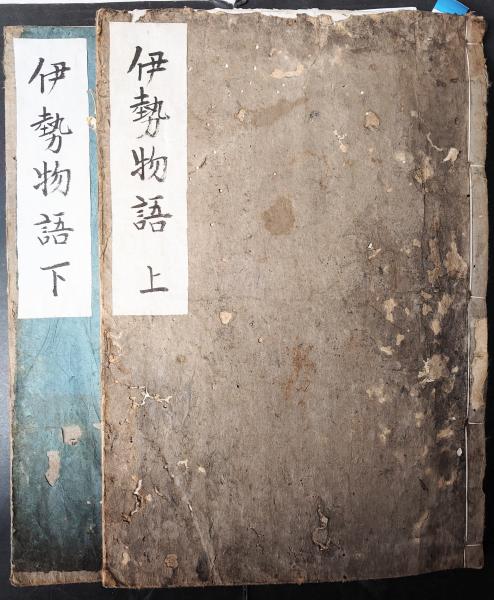 伊勢物語 上
伊勢物語 下